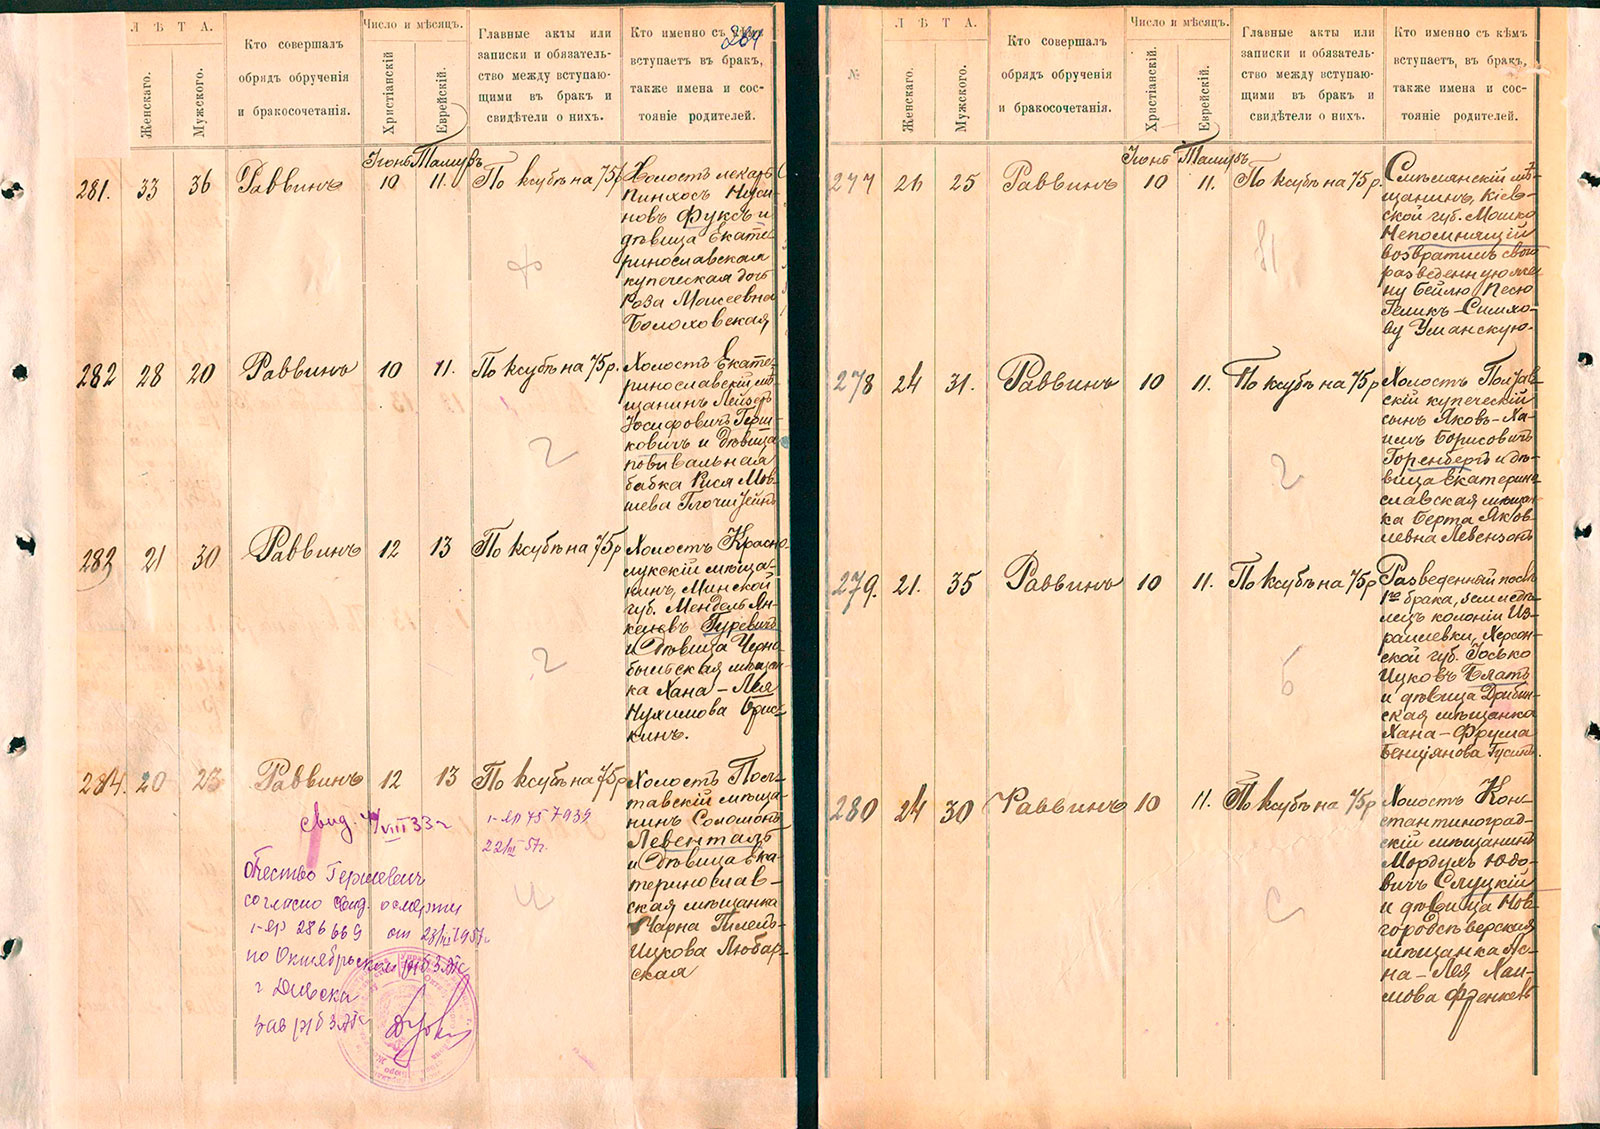 264
Л Ѣ Т А.
Женскаго.
Мужского.
Кто совершалъ
обрядъ обрученія
и бракосочетанія.
Число и мѣсяцъ.
Христіанскій
Еврейскій.
Главные акты или
записки и обязатель-
ство между вступаю-
щими въ бракъ и
свидѣтели о нихъ.
Кто именно съ кѣмъ
вступаетъ въ бракъ,
также имена и сос-
тояніе родителей.
Іюнь Тамузъ
281. 33 36 Раввинъ 10 11. По ксубѣ на 75р
Холостъ лекарь
Пинхосъ Нуси-
новъ Фуксъ и
дѣвица Екате
ринославская
купеческая дочь
Роза Моисеевна
Болоховская
282 28 20 Раввинъ 10 11. По ксубѣ на 75р.
Холостъ Екате-
ринославскій мѣ
щанинъ Лейзеръ
Іосифовичъ Герш
ковичъ и дѣвица
повивальная
бабка Рися Мов-
шева
283 21 30 Раввинъ 12 13 По ксубѣ на 75р
Холостъ Красно-
лукскій мѣща-
нинъ, Минской
губ. Мендель Ян-
келевъ Гуревичъ
и дѣвица Черно
быльская мѣщан-
ка Хана-Лея
Нухимова
кинъ.
284. 20 23 Раввинъ 12 13 По ксубѣ на 75р
Холостъ Пол-
тавскій мѣща-
нинъ Соломонъ
Левенталь
и дѣвица Ека
теринослав-
ская мѣщанка
Чарна Гитель
Ицкова Любар-
ская
свид. VIII 33 г
I-яр 457939
22/III 57г.
Отчество Гершевич
согласно свид. о смерти
I-яр 286669 от 23/III 1957г.
по Октябрьском р/б ЗАГС
г Днепска
зав р/б ЗАГС
№
Л Ѣ Т А.
Женскаго.
Мужского.
Кто совершалъ
обрядъ обрученія
и бракосочетанія.
Число и мѣсяцъ.
Христіанскій
Еврейскій.
Главные акты или
записки и обязатель-
ство между вступаю-
щими въ бракъ и
свидѣтели о нихъ.
Кто именно съ кѣмъ
вступаетъ въ бракъ,
также имена и сос-
тояніе родителей.
Іюнь Тамузъ
277 26 25 Раввинъ 10 11. По ксубѣ на 75р.
Смѣлянскій мѣ-
щанинъ, Кіев-
ской губ. Мошко
Непомнящій
возвратилъ свою
разведенную же-
ну Бейлю Песю
Гецикъ-Симхо-
ву Уманскую.
278 24 31. Раввинъ 10 11. По ксубѣ на 75р
Холостъ Полтав-
скій купеческій
сынъ Яковъ-Ха-
имъ Борисовичъ
Горенбергъ и дѣ-
вица Екатерино-
славская мѣщан-
ка Берта Яков-
левна Левензонъ
279. 21. 35 Раввинъ 10 11. По ксубѣ на 75р
Разведенный послѣ
1го брака, землед-
лецъ колоніи Из-
раилевки, Херсон-
ской губ. Іосько
Ицковъ Блатъ
и дѣвица Дрибин-
ская мѣщанка
Хана-Фрума
Бенціянова
280 24 30 Раввинъ 10 11. По ксубѣ на 75р
Холостъ Кон-
стантиноград-
скій мѣщанинъ
Мордухъ Юдо-
вичъ Слуцкій
и дѣвица Нов-
городсѣверская
мѣщанка Ас-
на-Лея Хаи-
мова Френкель